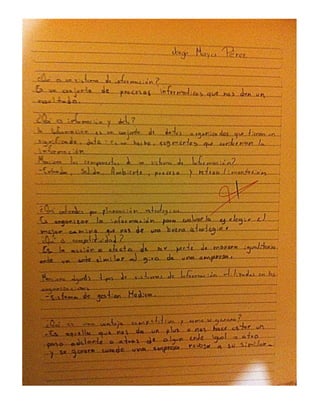 Jorge Macias Pérez
¿Que es un sistema de información?
Es un conjunto de procesos informaticos que nos dan un
resultado.
¿Qué es información y dato?
la información es un conjunto de datos organizados que tienen un
significado, dato: es un hecho que conforman la
información
Menciona los componentes de un sistema de Información?
-Entrada, Salida, Ambiente, proceso y retroalimentacion
¿Que entiendes por planeación estrategica
Es organizar la información para evaluarla y elegir el
mejor camino que nos de una buena strategia.
¿Qué es competitividad?
Es la acción a efecto de ser perte de manera igualitaria
ante un ente similar al giro de una empresa.
Menciona algunos tipos de sistemas de Información utilizados en las
organizaciones
-Sistema de gestion Medica.
¿Qué es una ventaja competitiva y como se genera?
-Es aquello que nos da un plus o nos hace estar un
paso adelante o atras de algun ente igual a otro
-y se genera cuando una empresa a su similar.